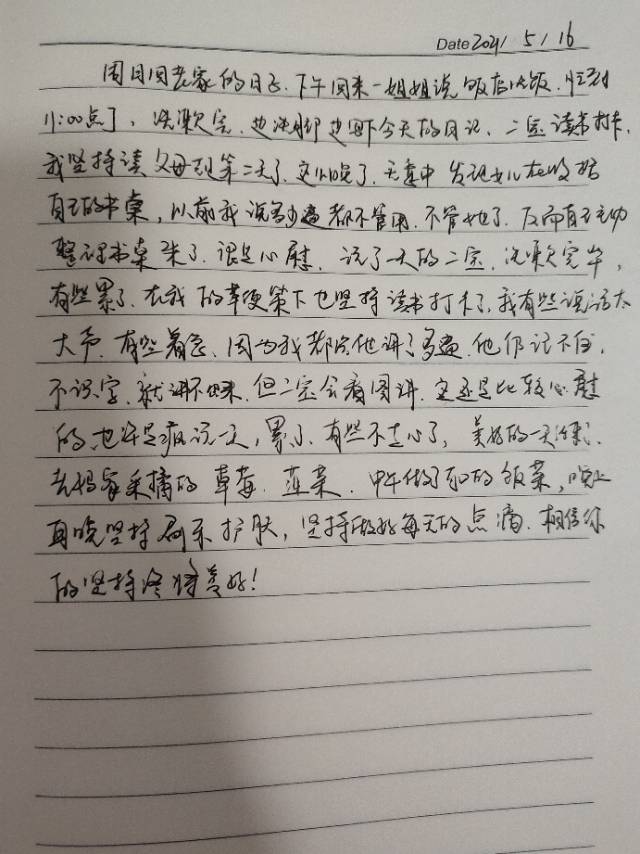 Date 2021 / 5 / 16
周日回老家的日子,下午回来一姐姐说饭后吃饭,忙到
11:00点了,洗漱完,边泡脚边写下今天的日记,二宝读书打卡,
我坚持读父母到第二天了,这小晚了,无意中发现女儿在收拾
自己的书桌,以前我说多少遍都不管用,不管她了,反而自己主动
整理书桌来了,很是心慰,玩了一天的二宝,洗漱完毕,
有些累了,在我的草硬策下也坚持读书打卡了,我有些说话太
大声,有些着急,因为我都给他讲了多遍,他仍记不住,
不识字,就讲不出来,但二宝会看图讲,它还是比较心慰
的,也许是疯玩一天,累了,有些不走心了,美好的一天结束,
去妈家采摘的草莓,韭菜,中午做了可口的饭菜,晚上
再晚坚持刷牙护肤,坚持做好每天的点滴,相信你
的坚持终将美好!